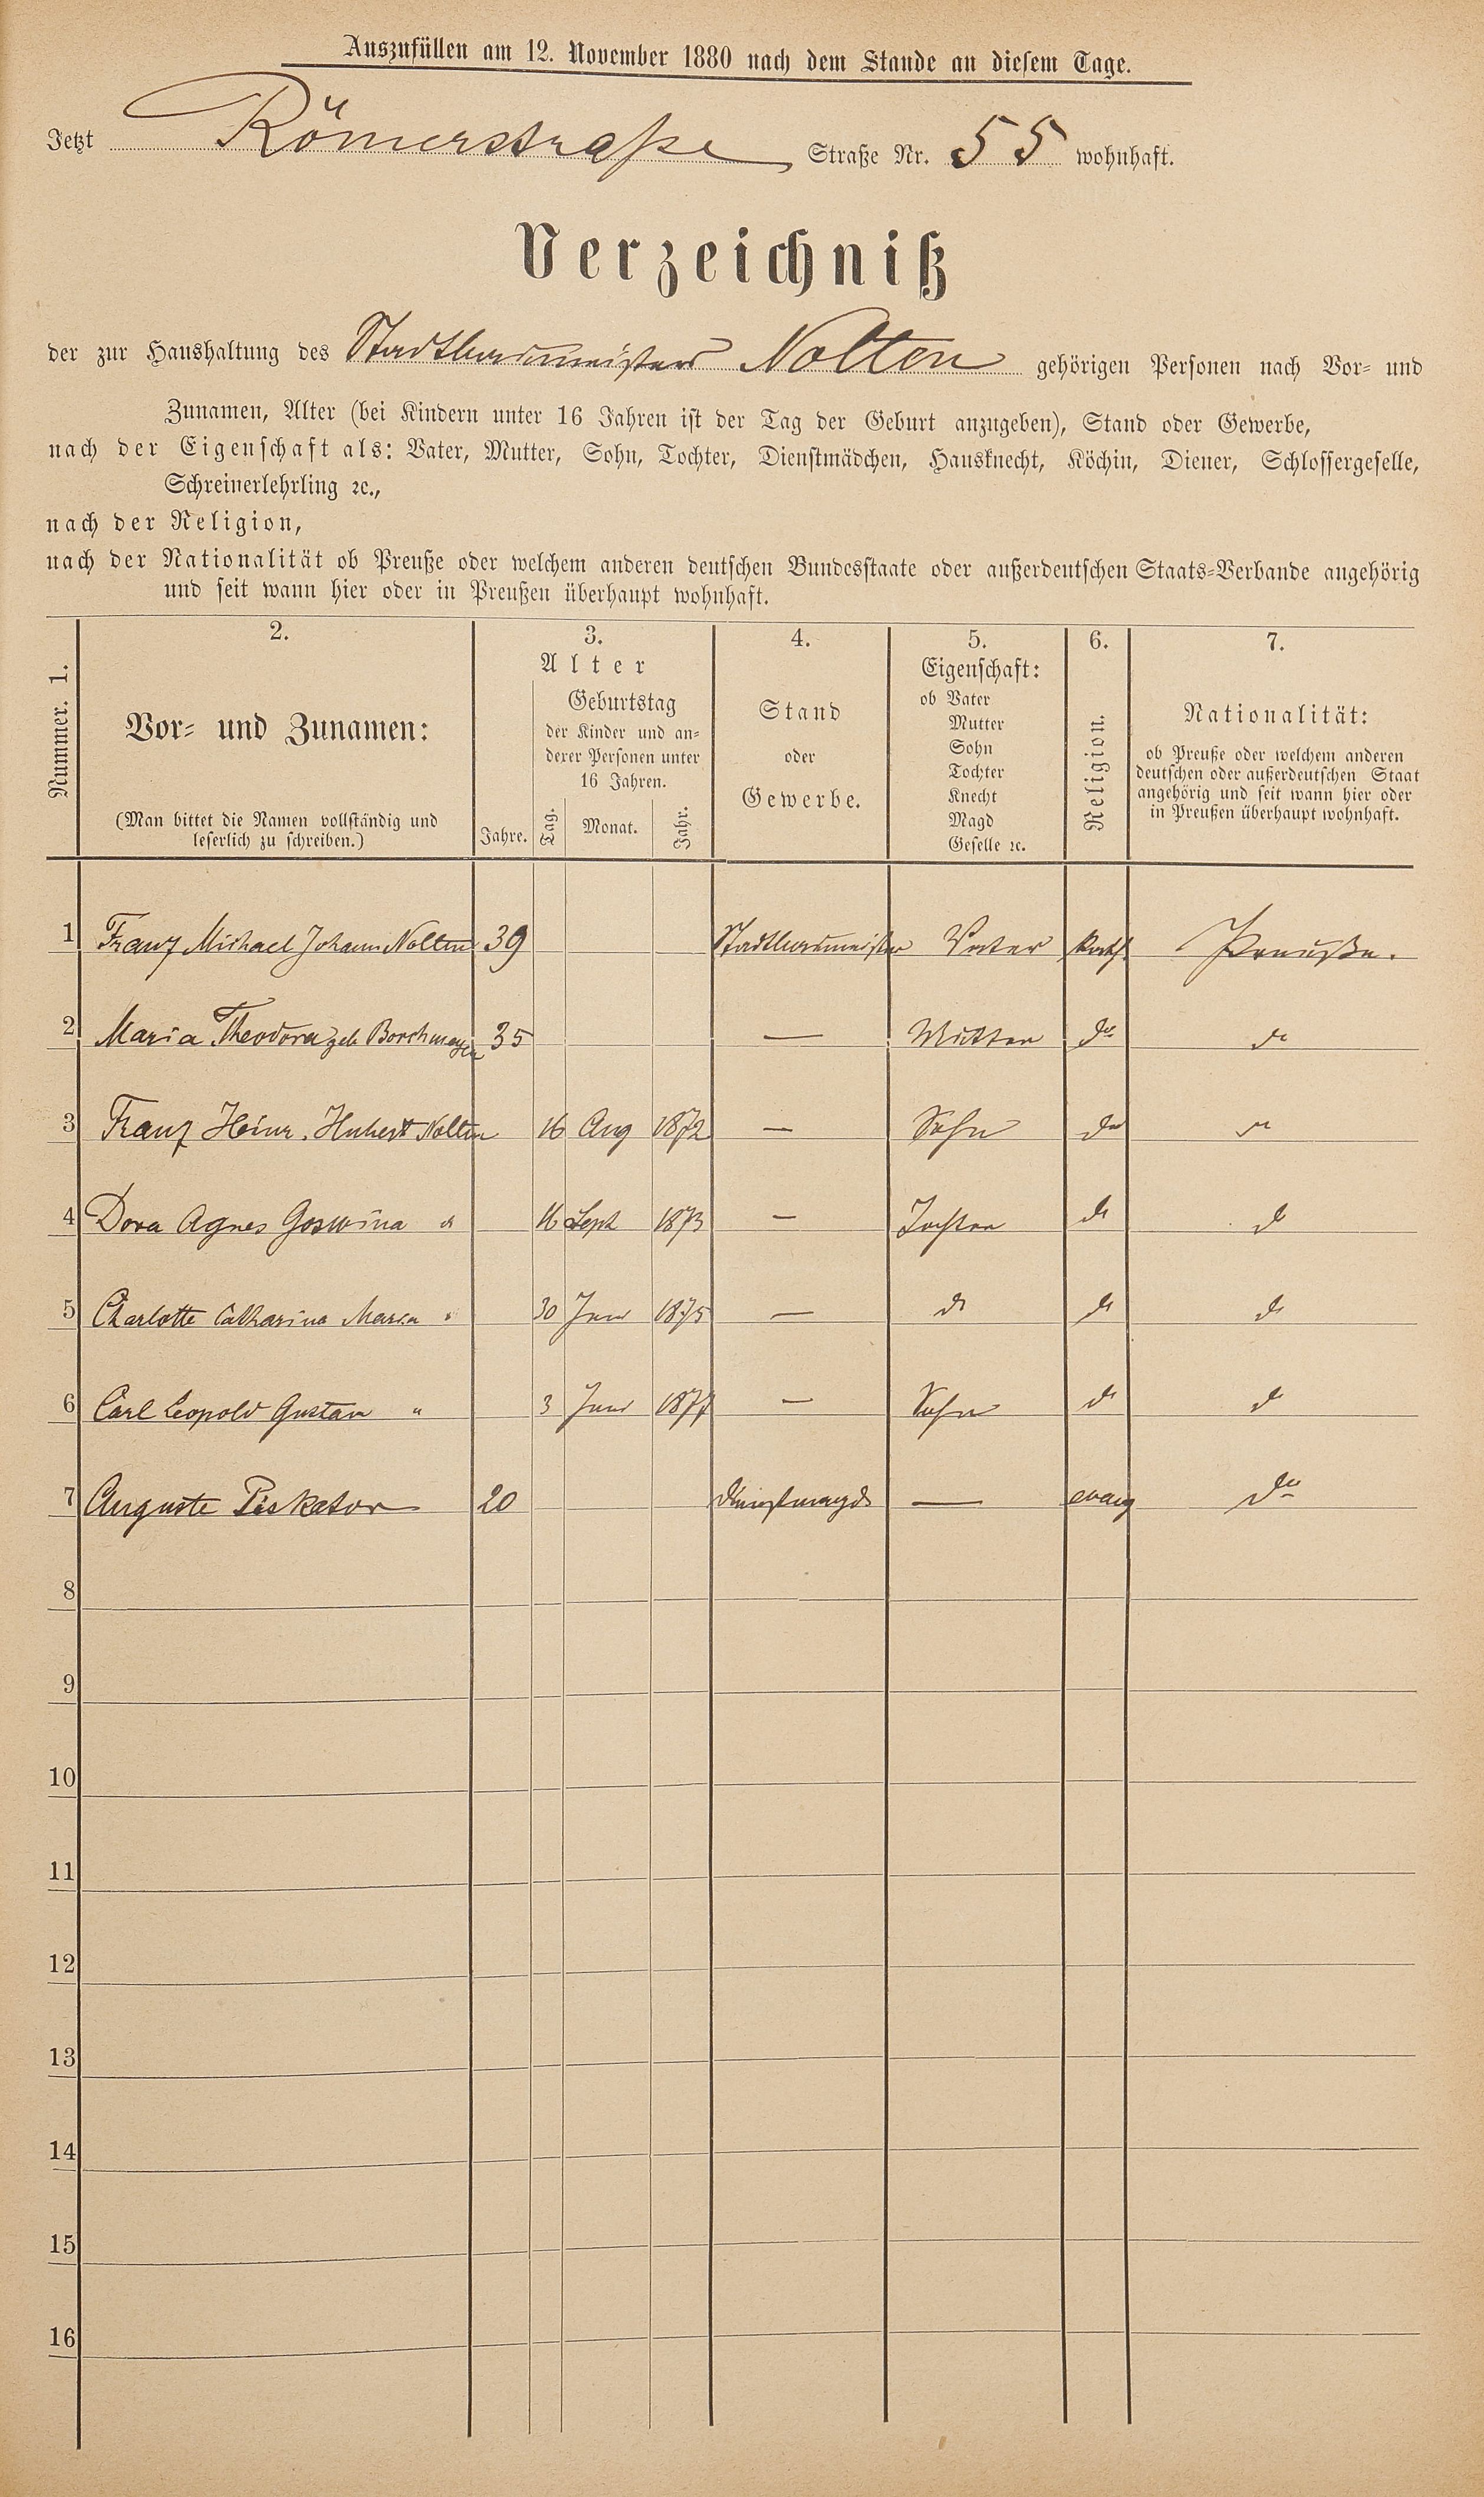 Auszufüllen am 12. November 1880 nach dem Stande an diesem Tage.
Jetzt Römerstraße Straße Nr. 55 wohnhaft.
Verzeichniß
der zur Haushaltung des Stadtbaumeisters Nolten gehörigen Personen nach Vor- und
Zunamen, Alter (bei Kindern unter 16 Jahren ist der Tag der Geburt anzugeben), Stand oder Gewerbe,
nach der Eigenschaft als: Vater, Mutter, Sohn, Tochter, Dienstmädchen, Hausknecht, Köchin, Diener, Schlossergeselle,
Schreinerlehrling ꝛc.,
nach der Religion,
nach der Nationalität ob Preuße oder welchem anderen deutschen Bundesstaate oder außerdeutschen Staats-Verbande angehörig
und seit wann hier oder in Preußen überhaupt wohnhaft.
Nummer. 1.
2.
Vor- und Zunamen:
(Man bittet die Namen vollständig und
leserlich zu schreiben.)
3.
Alter
Jahre.
Geburtstag
der Kinder und an-
derer Personen unter
16 Jahren.
Tag. Monat. Jahr.
4.
Stand
oder
Gewerbe.
5.
Eigenschaft:
ob Vater
Mutter
Sohn
Tochter
Knecht
Magd
Geselle ꝛc.
6.
Religion.
7.
Nationalität:
ob Preuße oder welchem anderen
deutschen oder außerdeutschen Staat
angehörig und seit wann hier oder
in Preußen überhaupt wohnhaft.
1 Franz Michael Johann Nolten 39 Stadtbaumeister Vater kath. Preuße.
2 Maria Theodora geb Borchmeyer 35 — Mutter do do
3 Franz Heinr. Hubert Nolten 16 Aug 1872 — Sohn do do
4 Dora Agnes Goswina do 16 Sept 1873 — Tochter do do
5 Charlotte Catharina Maria " 30 Juni 1875 — do do do
6 Carl Leopold Gustav " 3 Juni 1877 — Sohn do do
7 Auguste Piskator 20 Dienstmagd — evang do
8
9
10
11
12
13
14
15
16